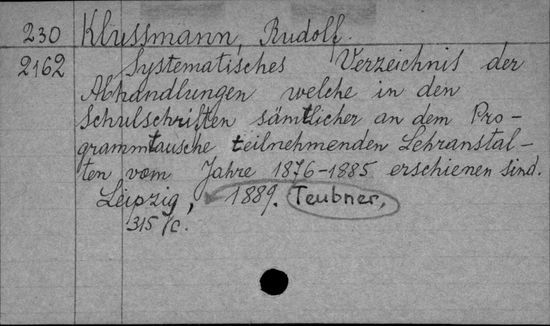 230 Klussmann, Rudolf.
2162 Systematisches Verzeichnis der
Abhandlungen welche in den
Schulschriften sämtlicher an dem Pro-
grammtausche teilnehmenden Lehranstal-
ten vom Jahre 1876-1885 erschienen sind.
Leipzig, 1889. Teubner,
315